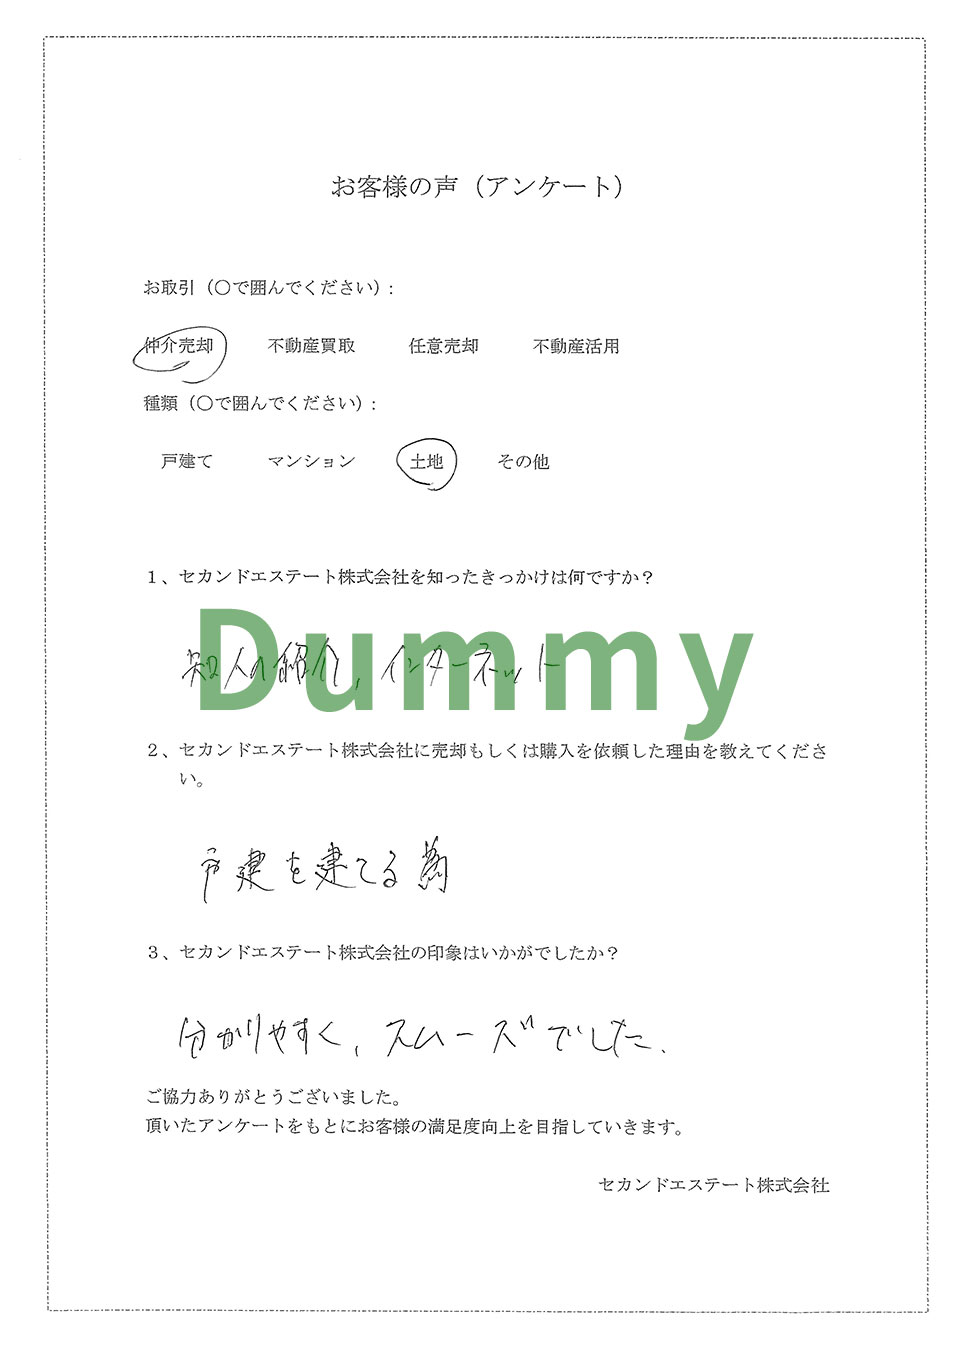 お客様の声（アンケート）
お取引（〇で囲んでください）:
仲介売却 不動産買取 任意売却 不動産活用
種類（〇で囲んでください）:
戸建て マンション 土地 その他
１、セカンドエステート株式会社を知ったきっかけは何ですか？
Dummy
知人の紹介, インターネット
２、セカンドエステート株式会社に売却もしくは購入を依頼した理由を教えてくださ
い。
戸建を建てる為
３、セカンドエステート株式会社の印象はいかがでしたか？
分かりやすく, スムーズでした.
ご協力ありがとうございました。
頂いたアンケートをもとにお客様の満足度向上を目指していきます。
セカンドエステート株式会社